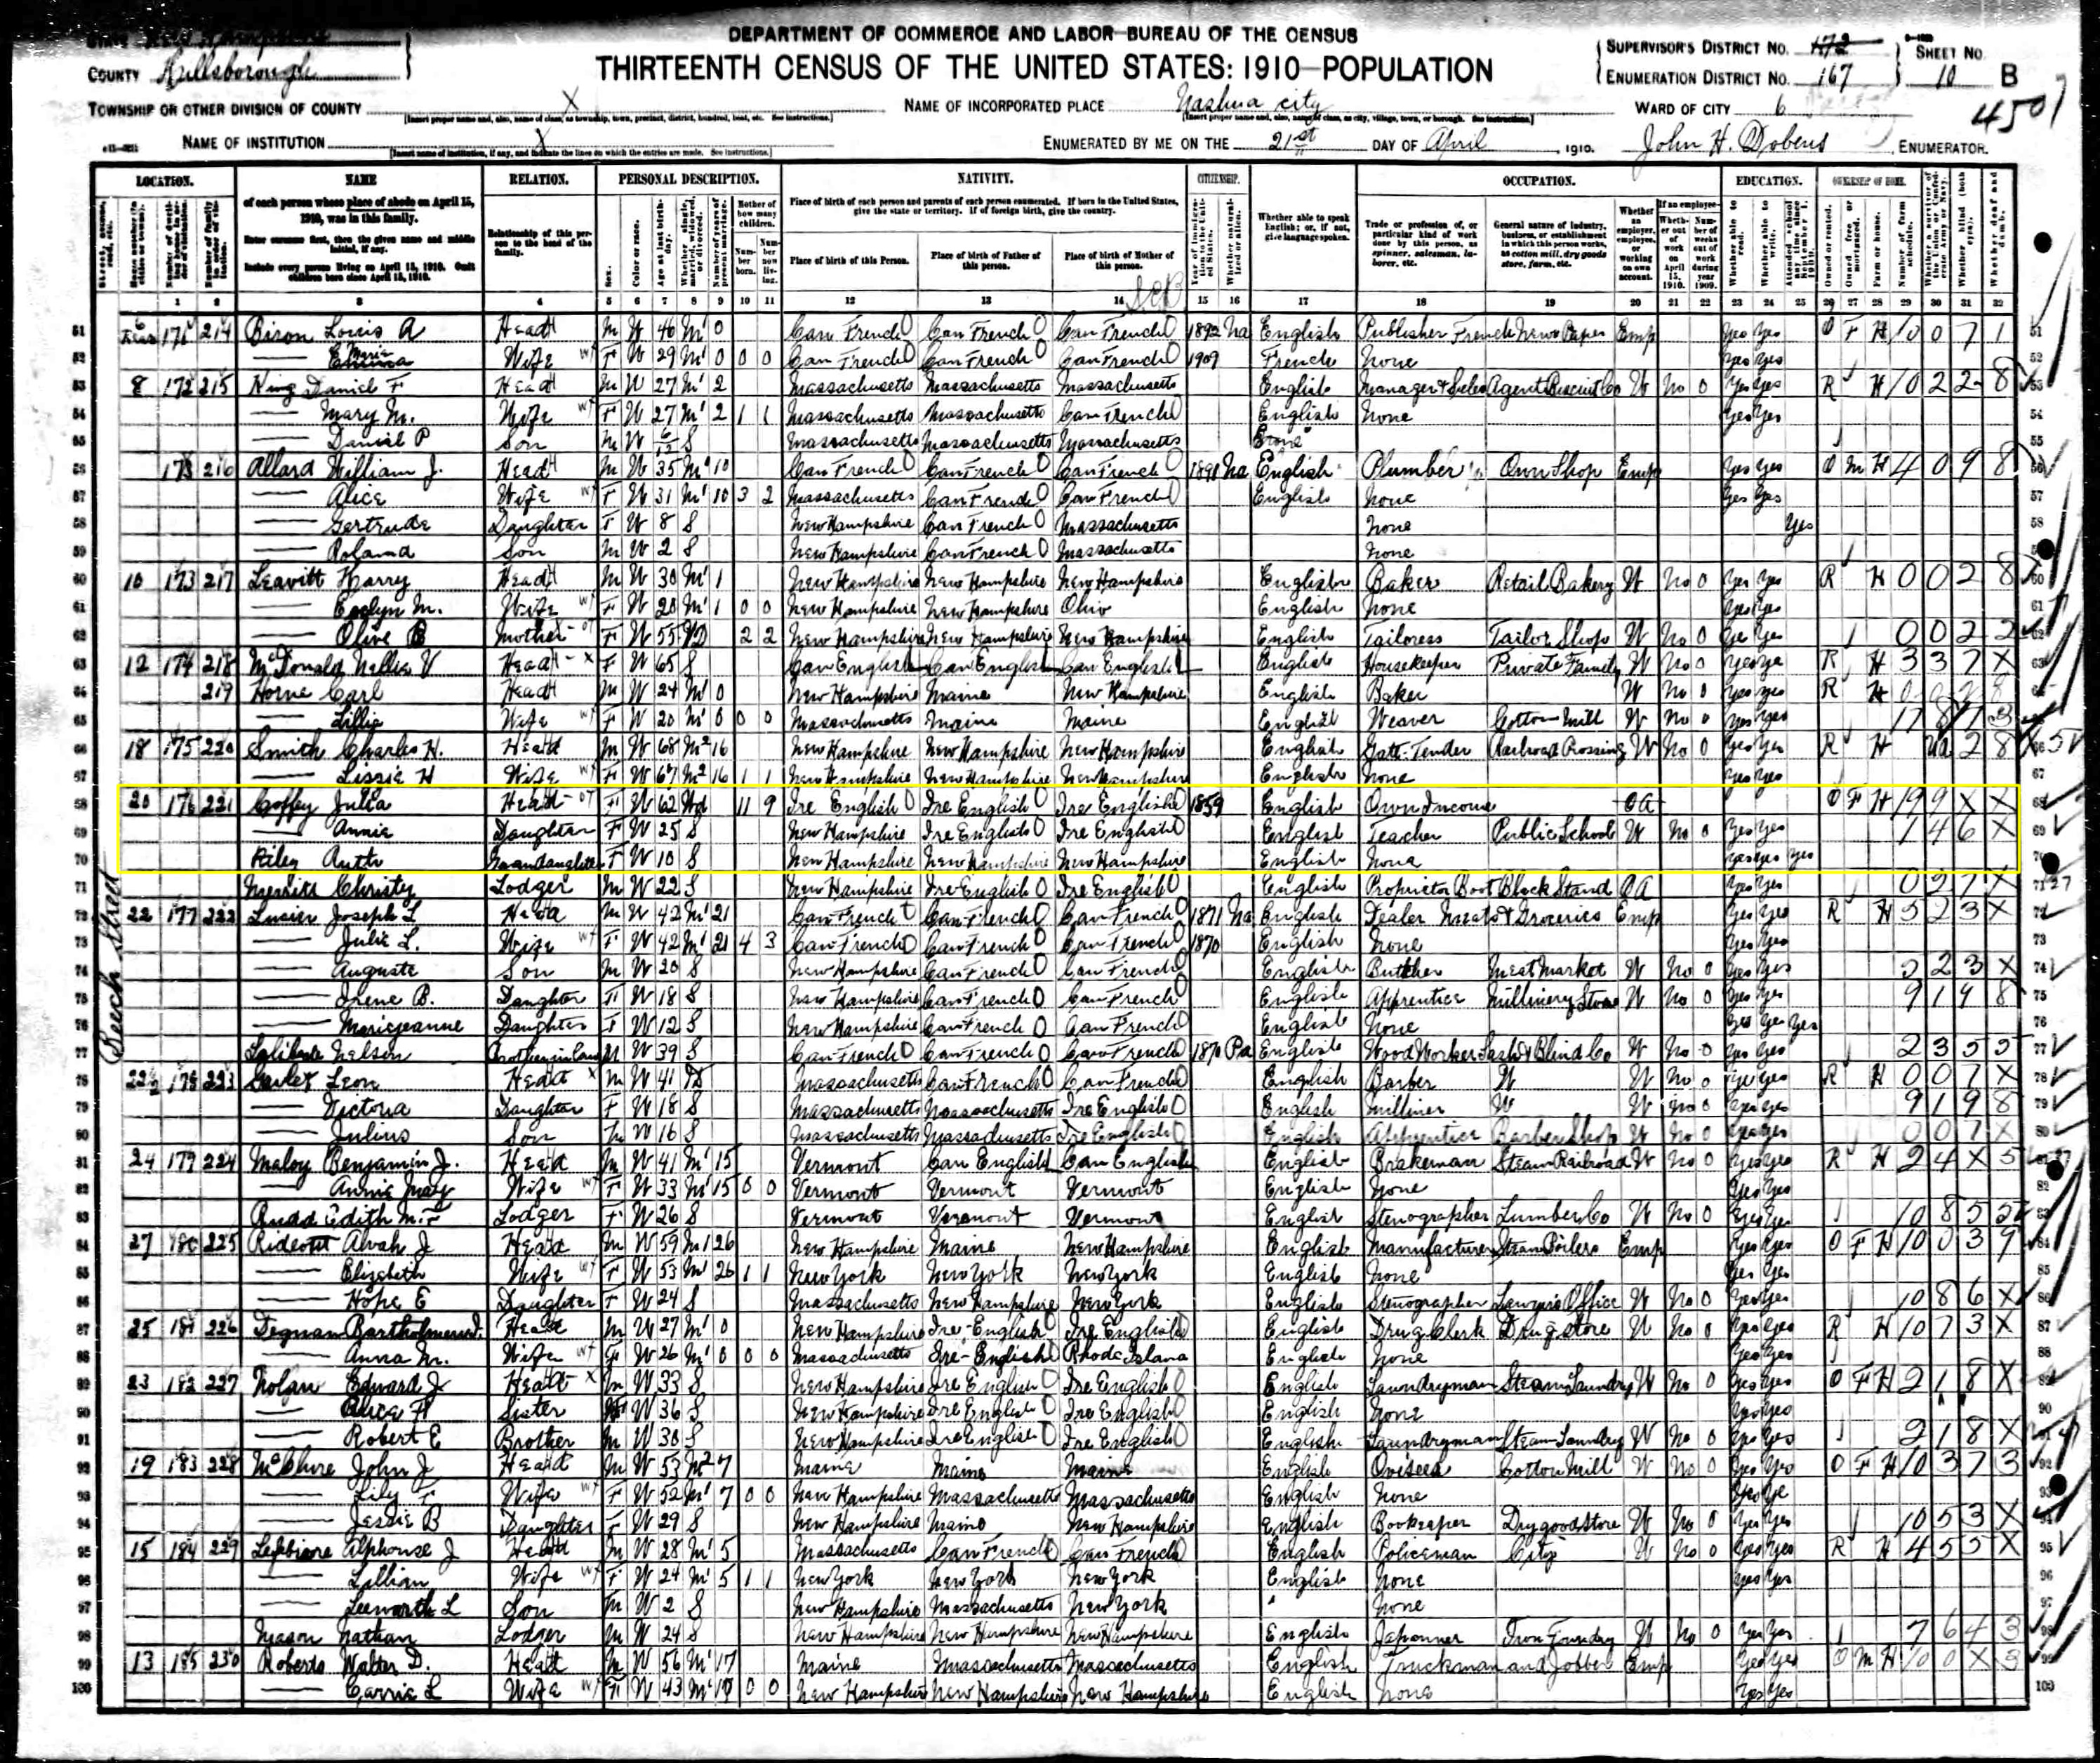 DEPARTMENT OF COMMERCE AND LABOR—BUREAU OF THE CENSUS
THIRTEENTH CENSUS OF THE UNITED STATES: 1910—POPULATION
STATE
COUNTY Hillsborough
TOWNSHIP OR OTHER DIVISION OF COUNTY X
NAME OF INCORPORATED PLACE Nashua city
NAME OF INSTITUTION X
ENUMERATED BY ME ON THE 21st DAY OF April, 1910.
John H. Dobens, ENUMERATOR.
SUPERVISOR'S DISTRICT NO. 172
ENUMERATION DISTRICT NO. 167
SHEET NO. 10 B
WARD OF CITY 6
4501
LOCATION. NAME RELATION. PERSONAL DESCRIPTION. NATIVITY. CITIZENSHIP. OCCUPATION. EDUCATION. OWNERSHIP OF HOME.
of each person whose place of abode on April 15, 1910, was in this family.
Enter surname first, then the given name and middle initial, if any.
Include every person living on April 15, 1910. Omit children born since April 15, 1910.
Relationship of this person to the head of the family.
Place of birth of each person and parents of each person enumerated. If born in the United States, give the state or territory. If of foreign birth, give the country.
Place of birth of this Person. Place of birth of Father of this person. Place of birth of Mother of this person.
Whether able to speak English; or, if not, give language spoken.
Trade or profession of, or particular kind of work done by this person, as spinner, salesman, laborer, etc.
General nature of industry, business, or establishment in which this person works, as cotton mill, dry goods store, farm, etc.
1 2 3 4 5 6 7 8 9 10 11 12 13 14 15 16 17 18 19 20 21 22 23 24 25 26 27 28 29 30 31 32
Beech Street
51 171 214 Biron Louis A Head M W 46 M1 0 Can French Can French Can French 1892 Na English Publisher French News Paper Emp Yes Yes O F H
52 Wife F W 29 M1 0 0 0 Can French Can French Can French 1909 French None Yes Yes
53 8 172 215 King Daniel F Head M W 27 M1 2 Massachusetts Massachusetts Massachusetts English W No 0 Yes Yes R H
54 Mary M. Wife F W 27 M1 2 1 1 Massachusetts Massachusetts Can French English None Yes Yes
55 Daniel P Son M W 6/12 S Massachusetts Massachusetts Massachusetts
56 173 216 Allard William J. Head M W 35 M1 10 Can French Can French Can French Na English Plumber Own Shop Emp Yes Yes O M H 4098
57 Alice Wife F W 31 M1 10 3 2 Massachusetts Can French Can French English None Yes Yes
58 Gertrude Daughter F W 8 S New Hampshire Can French Massachusetts None Yes
59 Roland Son M W 2 S New Hampshire Can French Massachusetts None
60 10 173 217 Leavitt Harry Head M W 30 M1 1 New Hampshire New Hampshire New Hampshire English Baker Retail Bakery W No 0 Yes Yes R H 0028
61 Evelyn M. Wife F W 28 M1 1 0 0 New Hampshire New Hampshire Ohio English None Yes Yes
62 Olive Mother F W 55 2 2 New Hampshire New Hampshire New Hampshire English Tailoress Tailor Shop W No 0 Yes Yes 0022
63 12 174 218 McDonald Nellie V Head F W 65 S Can English Can English Can English English Housekeeper Private Family W No 0 Yes Yes R H 337X
64 219 Horne Carl Head M W 24 M1 0 New Hampshire Maine New Hampshire English Baker W No 0 Yes Yes R H
65 Lillie Wife F W 20 M1 0 0 0 Massachusetts Maine Maine English Weaver Cotton Mill W No 0 Yes Yes
66 18 175 220 Smith Charles H. Head M W 68 M2 16 New Hampshire New Hampshire New Hampshire English Gate Tender Railroad Crossing W No 0 Yes Yes R H
67 Lizzie H Wife F W 67 M2 16 1 1 New Hampshire New Hampshire New Hampshire English None Yes Yes
68 20 176 221 Coffey Julia Head F W 62 Wd 11 9 Ire English Ire English Ire English 1859 English Own Income OA O F H 199XX
69 Annie Daughter F W 25 S New Hampshire Ire English Ire English English Teacher Public School W No 0 Yes Yes 146X
70 Riley Ruth Granddaughter F W 10 S New Hampshire New Hampshire New Hampshire English None Yes Yes Yes
71 Christy Lodger M W 22 S New Hampshire Ire English Ire English English Proprietor Boot Black Stand OA Yes Yes
72 22 177 222 Lusier Joseph L Head M W 42 M1 21 Can French Can French Can French 1871 Na English Dealer Meats & Groceries Emp Yes Yes R H 523X
73 Julie L. Wife F W 42 M1 21 4 3 Can French Can French Can French 1870 English None Yes Yes
74 Auguste Son M W 20 S New Hampshire Can French Can French English Butcher Meat Market W No 0 Yes Yes
75 Irene B. Daughter F W 18 S New Hampshire Can French Can French English Apprentice Millinery Store W No 0 Yes Yes 9198
76 Mariejeanne Daughter F W 12 S New Hampshire Can French Can French English None Yes Yes Yes
77 Nelson Brotherinlaw M W 39 S Can French Can French Can French 1870 Pa English Wood Worker Sash & Blind Co W No 0 Yes Yes 2355
78 22½ 178 223 Leon Head M W 41 D Massachusetts Can French Can French English Barber W W No 0 Yes Yes R H 007X
79 Victoria Daughter F W 18 S Massachusetts Massachusetts Ire English English Milliner W W No 0 Yes Yes 9198
80 Julius Son M W 16 S Massachusetts Massachusetts Ire English English Apprentice Barber Shop W No 0 Yes Yes 007X
81 24 179 224 Maloy Benjamin J. Head M W 41 M1 15 Vermont Can English Can English English Brakeman Steam Railroad W No 0 Yes Yes R H 24X5
82 Annie May Wife F W 33 M1 15 0 0 Vermont Vermont Vermont English None Yes Yes
83 Rudd Edith M. Lodger F W 26 S Vermont Vermont Vermont English Stenographer Lumber Co W No 0 Yes Yes
84 27 180 225 Rideout Alvah J Head M W 59 M1 26 New Hampshire Maine New Hampshire English Manufacturer Steam Boilers Emp Yes Yes O F H
85 Elizabeth Wife F W 53 M1 26 1 1 New York New York New York English None Yes Yes
86 Hope E Daughter F W 24 S Massachusetts New Hampshire New York English Stenographer Lawyers Office W No 0 Yes Yes 1086X
87 25 181 226 Degnan Bartholomew J. Head M W 27 M1 0 New Hampshire Ire-English Ire English English Drug Clerk Drug Store W No 0 Yes Yes R H 1073X
88 Anna M. Wife F W 26 M1 0 0 0 Massachusetts Ire-English Rhode Island English None Yes Yes
89 23 182 227 Nolan Edward J Head M W 33 S New Hampshire Ire English Ire English English Laundryman Steam Laundry W No 0 Yes Yes O F H 218X
90 Alice Sister W 36 S New Hampshire Ire English Ire English English None Yes Yes
91 Robert E Brother M W 30 S New Hampshire Ire English Ire English English Laundryman Steam Laundry W No 0 Yes Yes 218X
92 19 183 228 McClure John J Head M W 53 M2 7 Maine Maine Maine English Overseer Cotton Mill W No 0 Yes Yes O F H 10373
93 Lily F Wife F W 52 M1 7 0 0 New Hampshire Massachusetts Massachusetts English None
94 Jessie B Daughter F W 29 S New Hampshire Maine New Hampshire English Bookeeper Drygood Store W No 0 Yes Yes 1053X
95 15 184 229 Alphonse J Head M W 28 M1 5 Massachusetts Can French Can French English Policeman City W No 0 Yes Yes R H 455X
96 Lillian Wife F W 24 M1 5 1 1 New York New York New York English None Yes Yes
97 L Son M W 2 S New Hampshire Massachusetts New York None
98 Mason Nathan Lodger M W 24 S New Hampshire New Hampshire New Hampshire English Japanner Iron Foundry W No 0 Yes Yes 7643
99 13 185 230 Roberts Walter D. Head M W 56 M1 17 Maine Massachusetts Massachusetts English Truckman and Jobber Emp Yes Yes O M H
100 Carrie L Wife F W 43 M1 17 0 0 New Hampshire New Hampshire New Hampshire English None Yes Yes